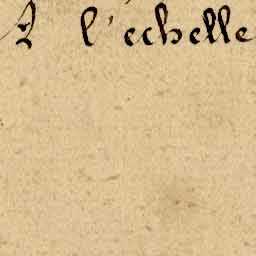 A l'echelle